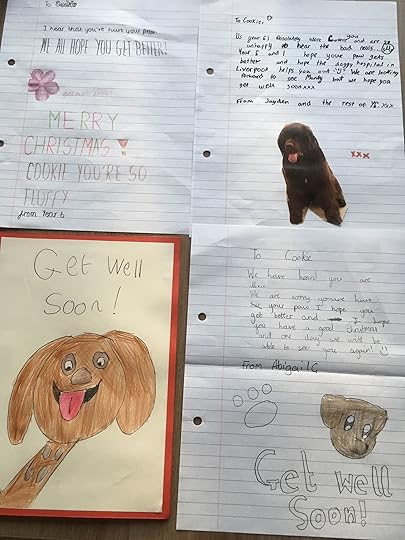 To
I hear that you've hurt your paw.
WE ALL HOPE YOU GET BETTER!
MERRY
CHRISTMAS!
COOKIE YOU'RE SO
FLUFFY
from Year 6
To Cookie,
Us year 6's absolutely adore you and are so
unhappy to hear the bad news.
Year 6 and I hope your paw gets
better and hope the doggy hospital in
Liverpool helps you out "U". We are looking
forward to see but we hope you
get well soon xxx
From Jayden and the rest of Y6 xxx
xxx
Get Well
Soon!
To Cookie
We have heard you are
We are sorry you've hurt
your paw I hope you
get better and I hope
you have a good christmas
and one day we will be
able to see you again! :)
From Abigail G
Get well
Soon!